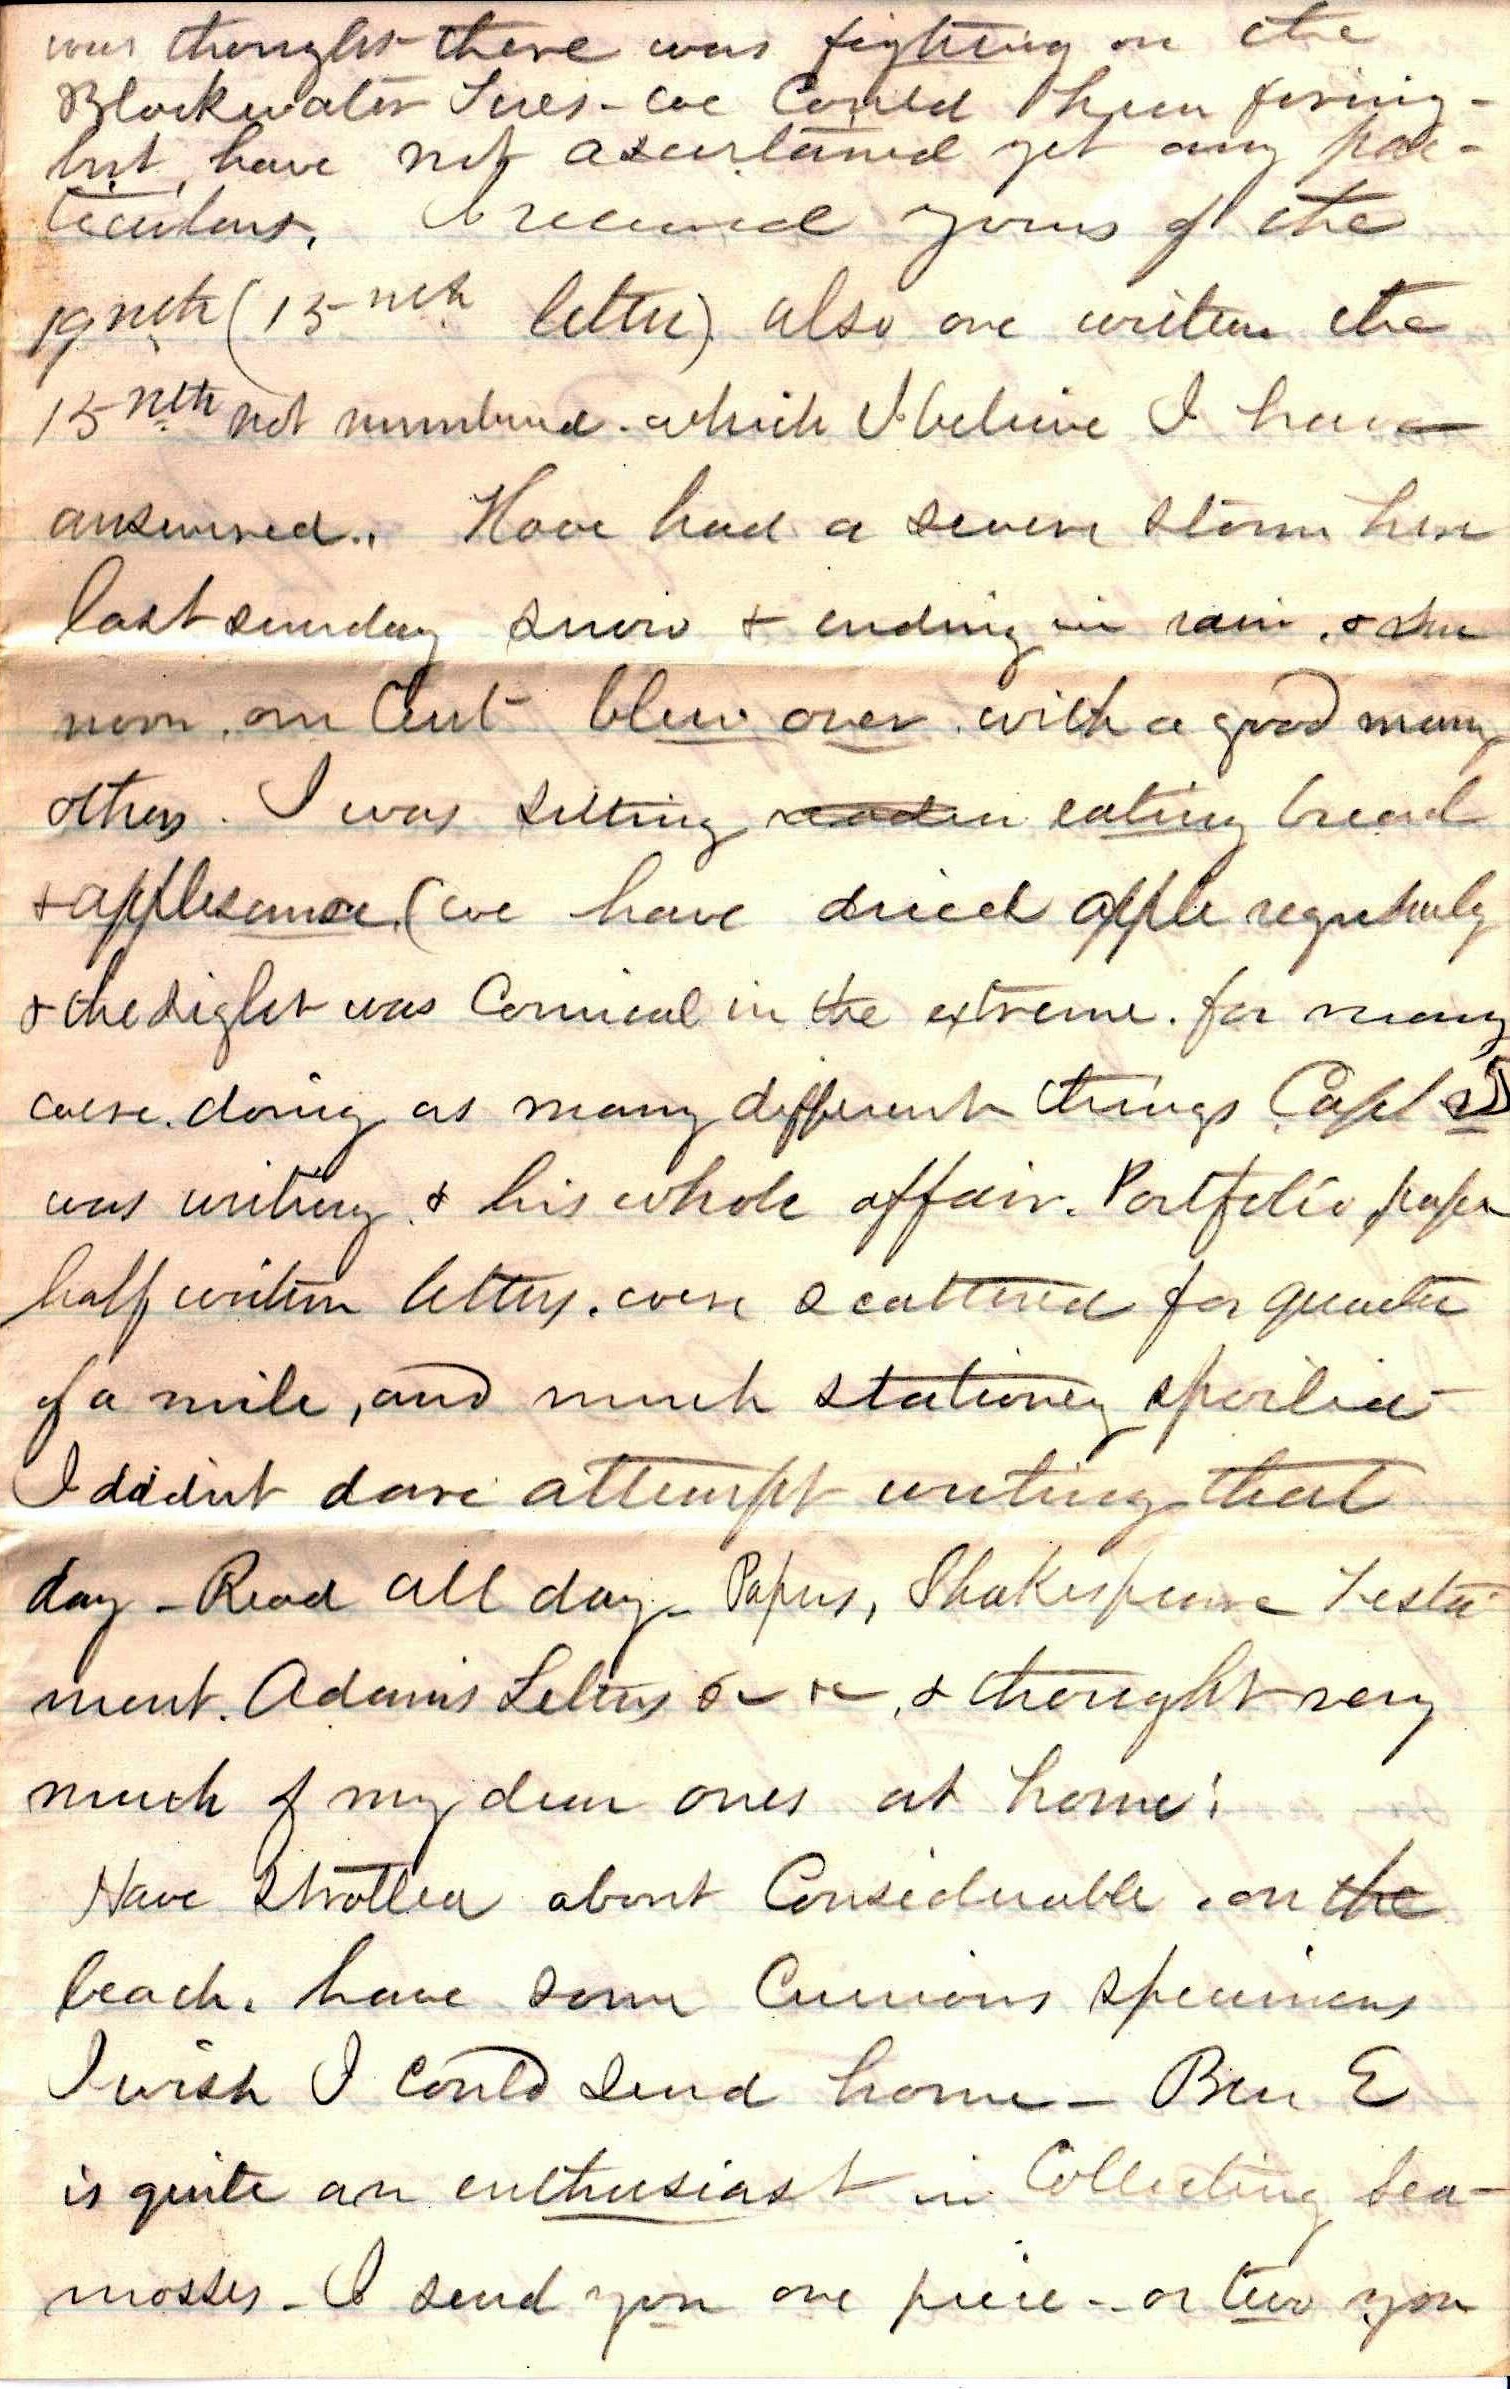 was thought there was fighting on the
Blackwater Tues - we Could hear firing -
but have not ascertained yet any par-
ticulars. I received yours of the
19nth (15nth letter) also one written the
15nth not numbered. which I believe I have
answered.. Have had a severe storm here
last sunday snow & ending in rain. &
noon. our tent blew over. with a good many
others. I was sitting eating bread
& applesauce. (we have dried apple regularly
& the sight was Comical in the extreme. for many
were. doing as many different things Capt
was writing. & his whole affair. Portfolio, paper
half written letters. were scattered for quarter
of a mile, and much stationey spoiled -
I didn't dare attempt writing that
day - Read all day - Papers, Shakespeare Testa-
ment. Adams Letters &c &c, & thought very
much of my dear ones at home!
Have strolled about Considerable. on the
beach. have some Curious specimens
I wish I could send home - Ben E
is quite an enthusiast in Collecting Sea-
mosses - I send you one piece - or two you